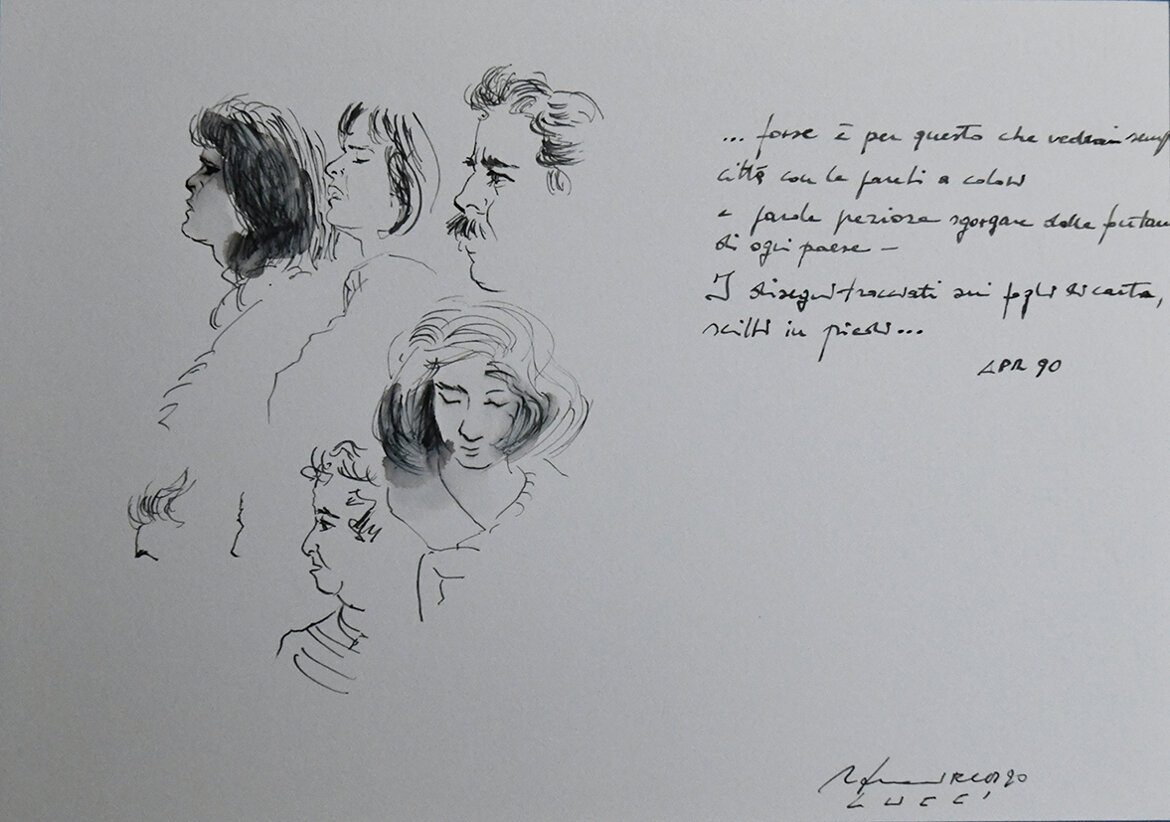 ... forse è per questo che vedrai semp
città con le pareti a colori
e parole preziose sgorgare dalle fontan
di ogni paese —
I disegni tracciati sui fogli di carta,
scritti in piedi...
APR 90
90
LUCCI